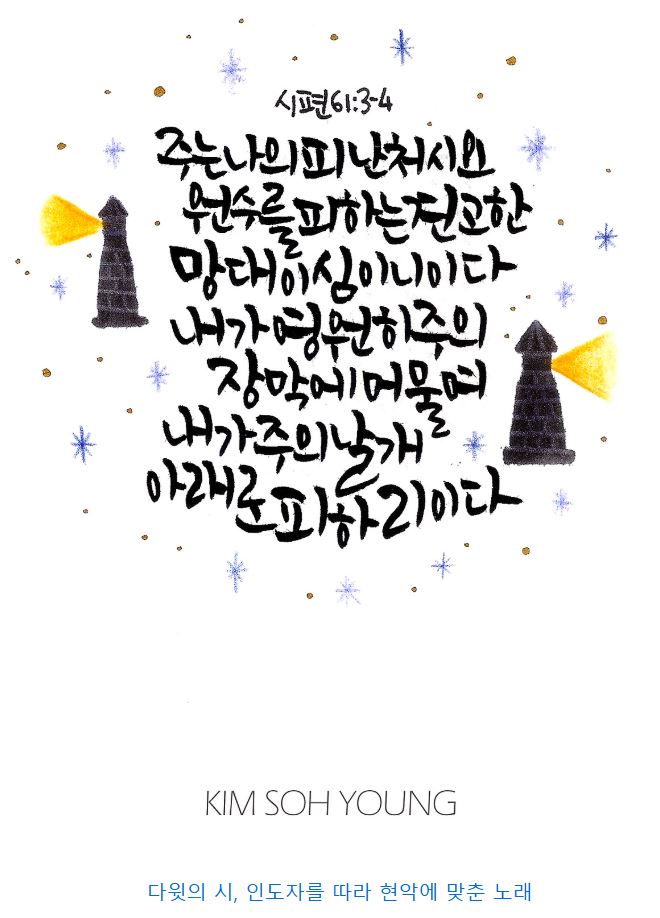 시편 61:3-4
주는 나의 피난처시요
원수를 피하는 견고한
망대이심이니이다
내가 영원히 주의
장막에 머물며
내가 주의 날개
아래로 피하리이다
KIM SOH YOUNG
다윗의 시, 인도자를 따라 현악에 맞춘 노래